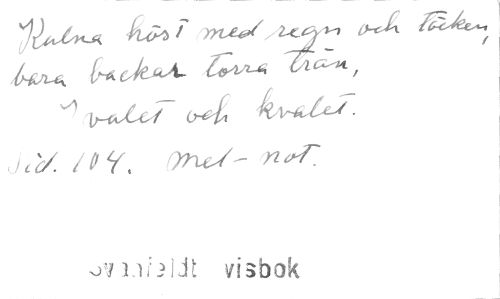 Kulna höst med regn och töcken,
bara backar torra trän,
I valet och kvalet.
Sid. 104. Mel-not.
visbok